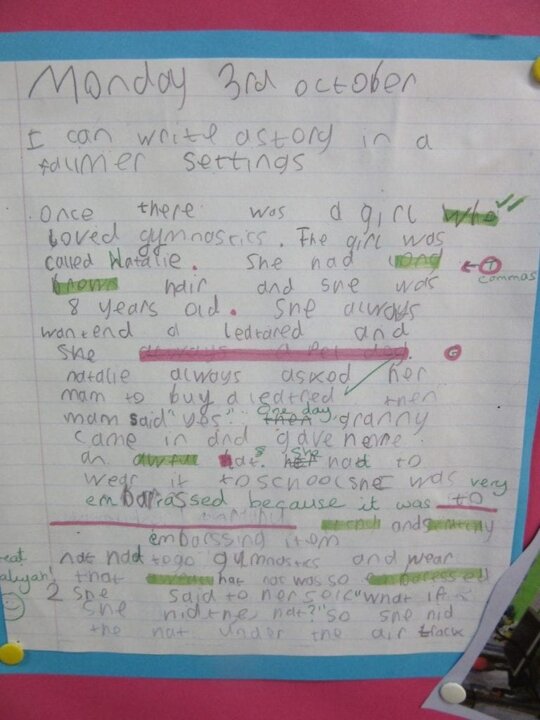 Monday 3rd october
I can write a story in a
faumer settings
Once there was a girl who
loved gymnastics. The girl was
called Natalie. She had long
T
commas
brown hair and she was
8 years old. She always
wantend a leotared and
she always a Pet dog.
G
natalie always asked her
mam to buy a leotred then
mam said "yes". then One day, granny
came in and gave here
an awful hat. her She had to
wear it to school she was very
embarrassed because it was to
and
embarssing item
nat had to go gymnastics and wear
that hat nat was so embaressed
2 she said to herself "what if
she hid the hat?" so she hid
the hat under the air track